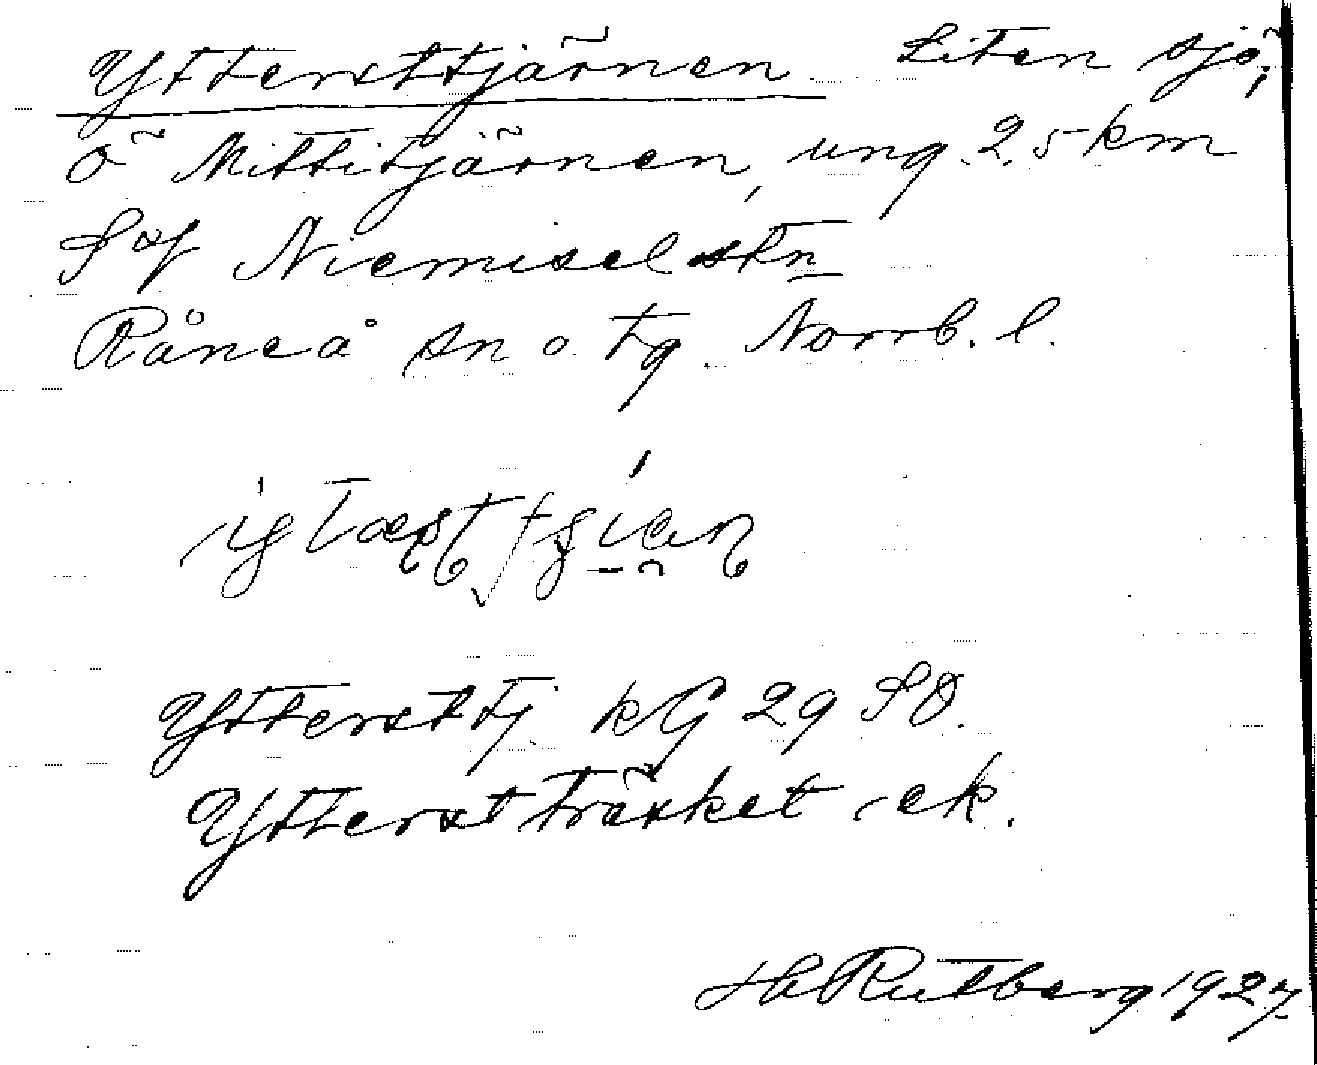 Yttersttjärnen. Liten sjö,
Ö Mittitjärnen, ung. 2,5 km
S af Niemisel stn
Råneå sn o. tg. Norrb. l.
Yttersttj. kG 29 SO.
Ytterstträsket, ek.
H Rutberg 1927.